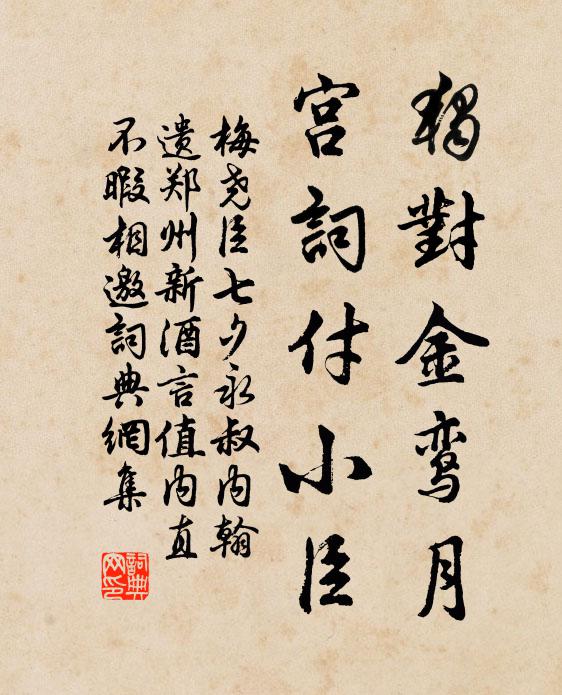 獨對金鸾月
宫詞付小臣
梅尧臣七夕永叔内翰
遗郑州新酒言值内直
不暇相邀詞典網集
詞典
网印